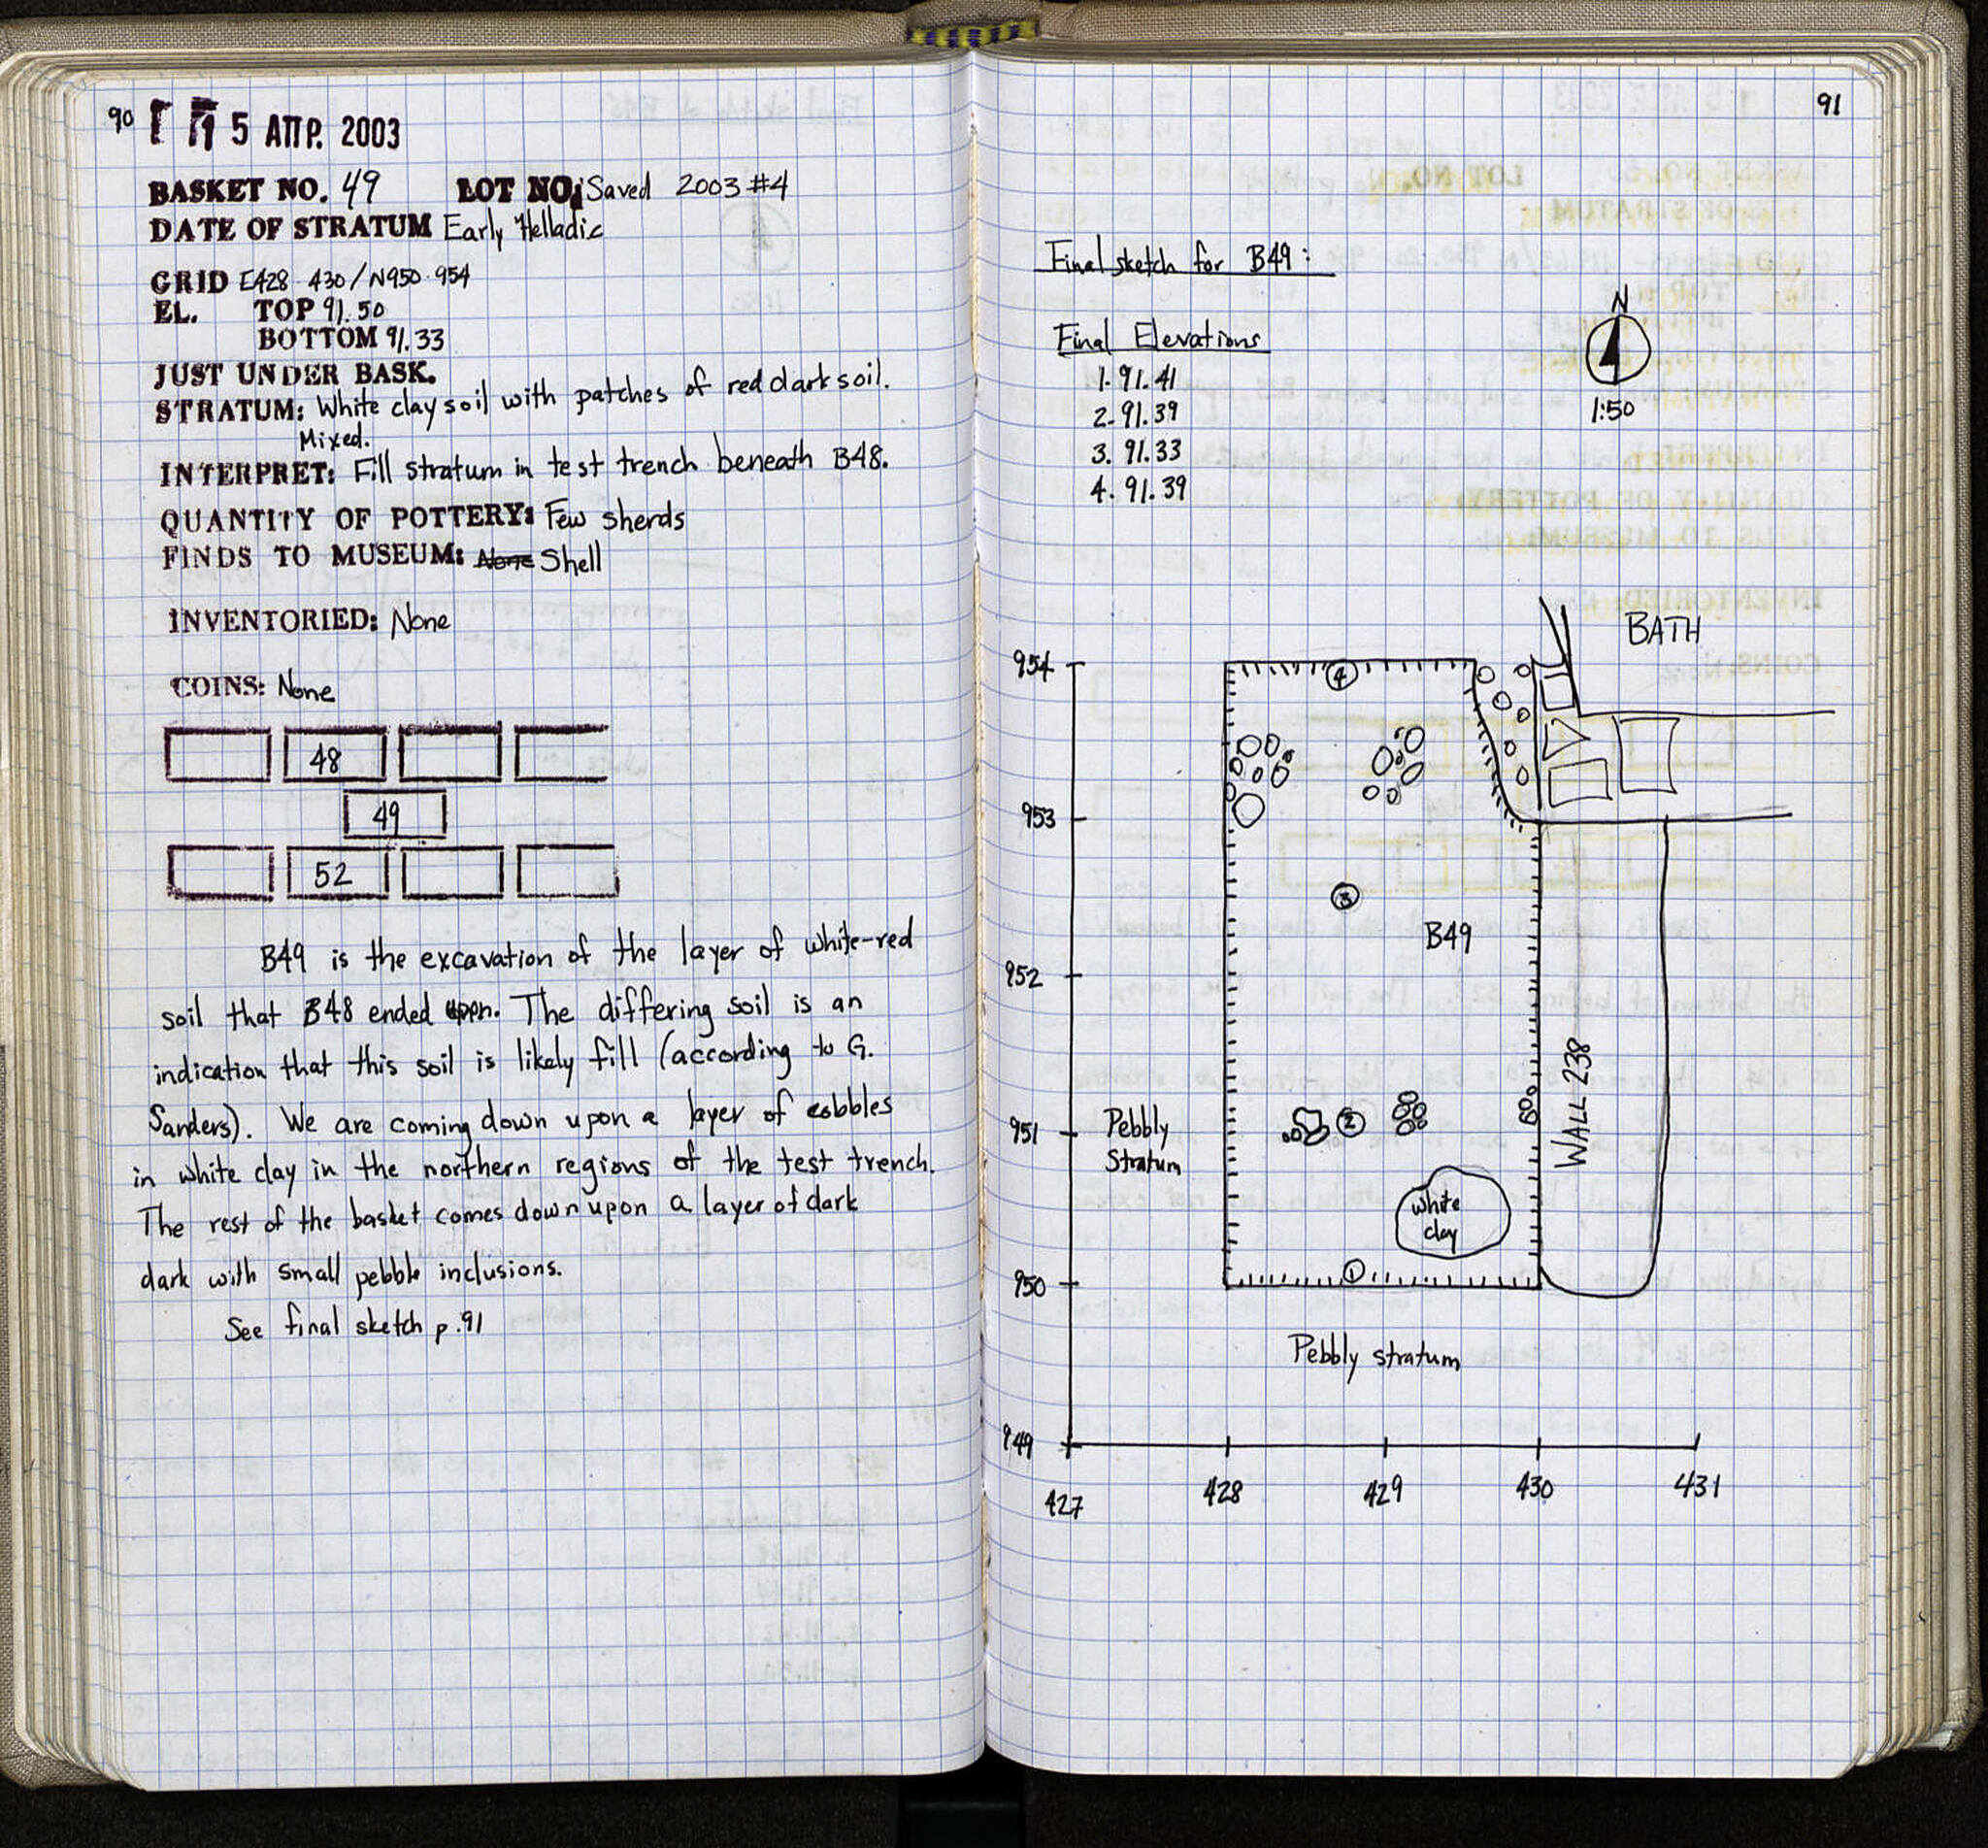 90
15 ΑΠΡ. 2003
BASKET NO. 49 LOT NO: Saved 2003 #4
DATE OF STRATUM Early Helladic
GRID E428-430/N950-954
EL. TOP 91.50
BOTTOM 91.33
JUST UNDER BASK.
STRATUM: White clay soil with patches of red dark soil.
Mixed.
INTERPRET: Fill stratum in test trench beneath B48.
QUANTITY OF POTTERY: Few sherds
FINDS TO MUSEUM: None Shell
INVENTORIED: None
COINS: None
48
49
52
B49 is the excavation of the layer of white-red
soil that B48 ended upon. The differing soil is an
indication that this soil is likely fill (according to G.
Sanders). We are coming down upon a layer of cobbles
in white clay in the northern regions of the test trench.
The rest of the basket comes down upon a layer of dark
dark with small pebble inclusions.
See final sketch p.91
91
Final sketch for B49:
N
1:50
Final Elevations
1. 91.41
2. 91.39
3. 91.33
4. 91.39
BATH
954
4
953
3
B49
952
WALL 238
951
Pebbly
Stratum
2
white
clay
950
1
Pebbly stratum
949
427
428
429
430
431